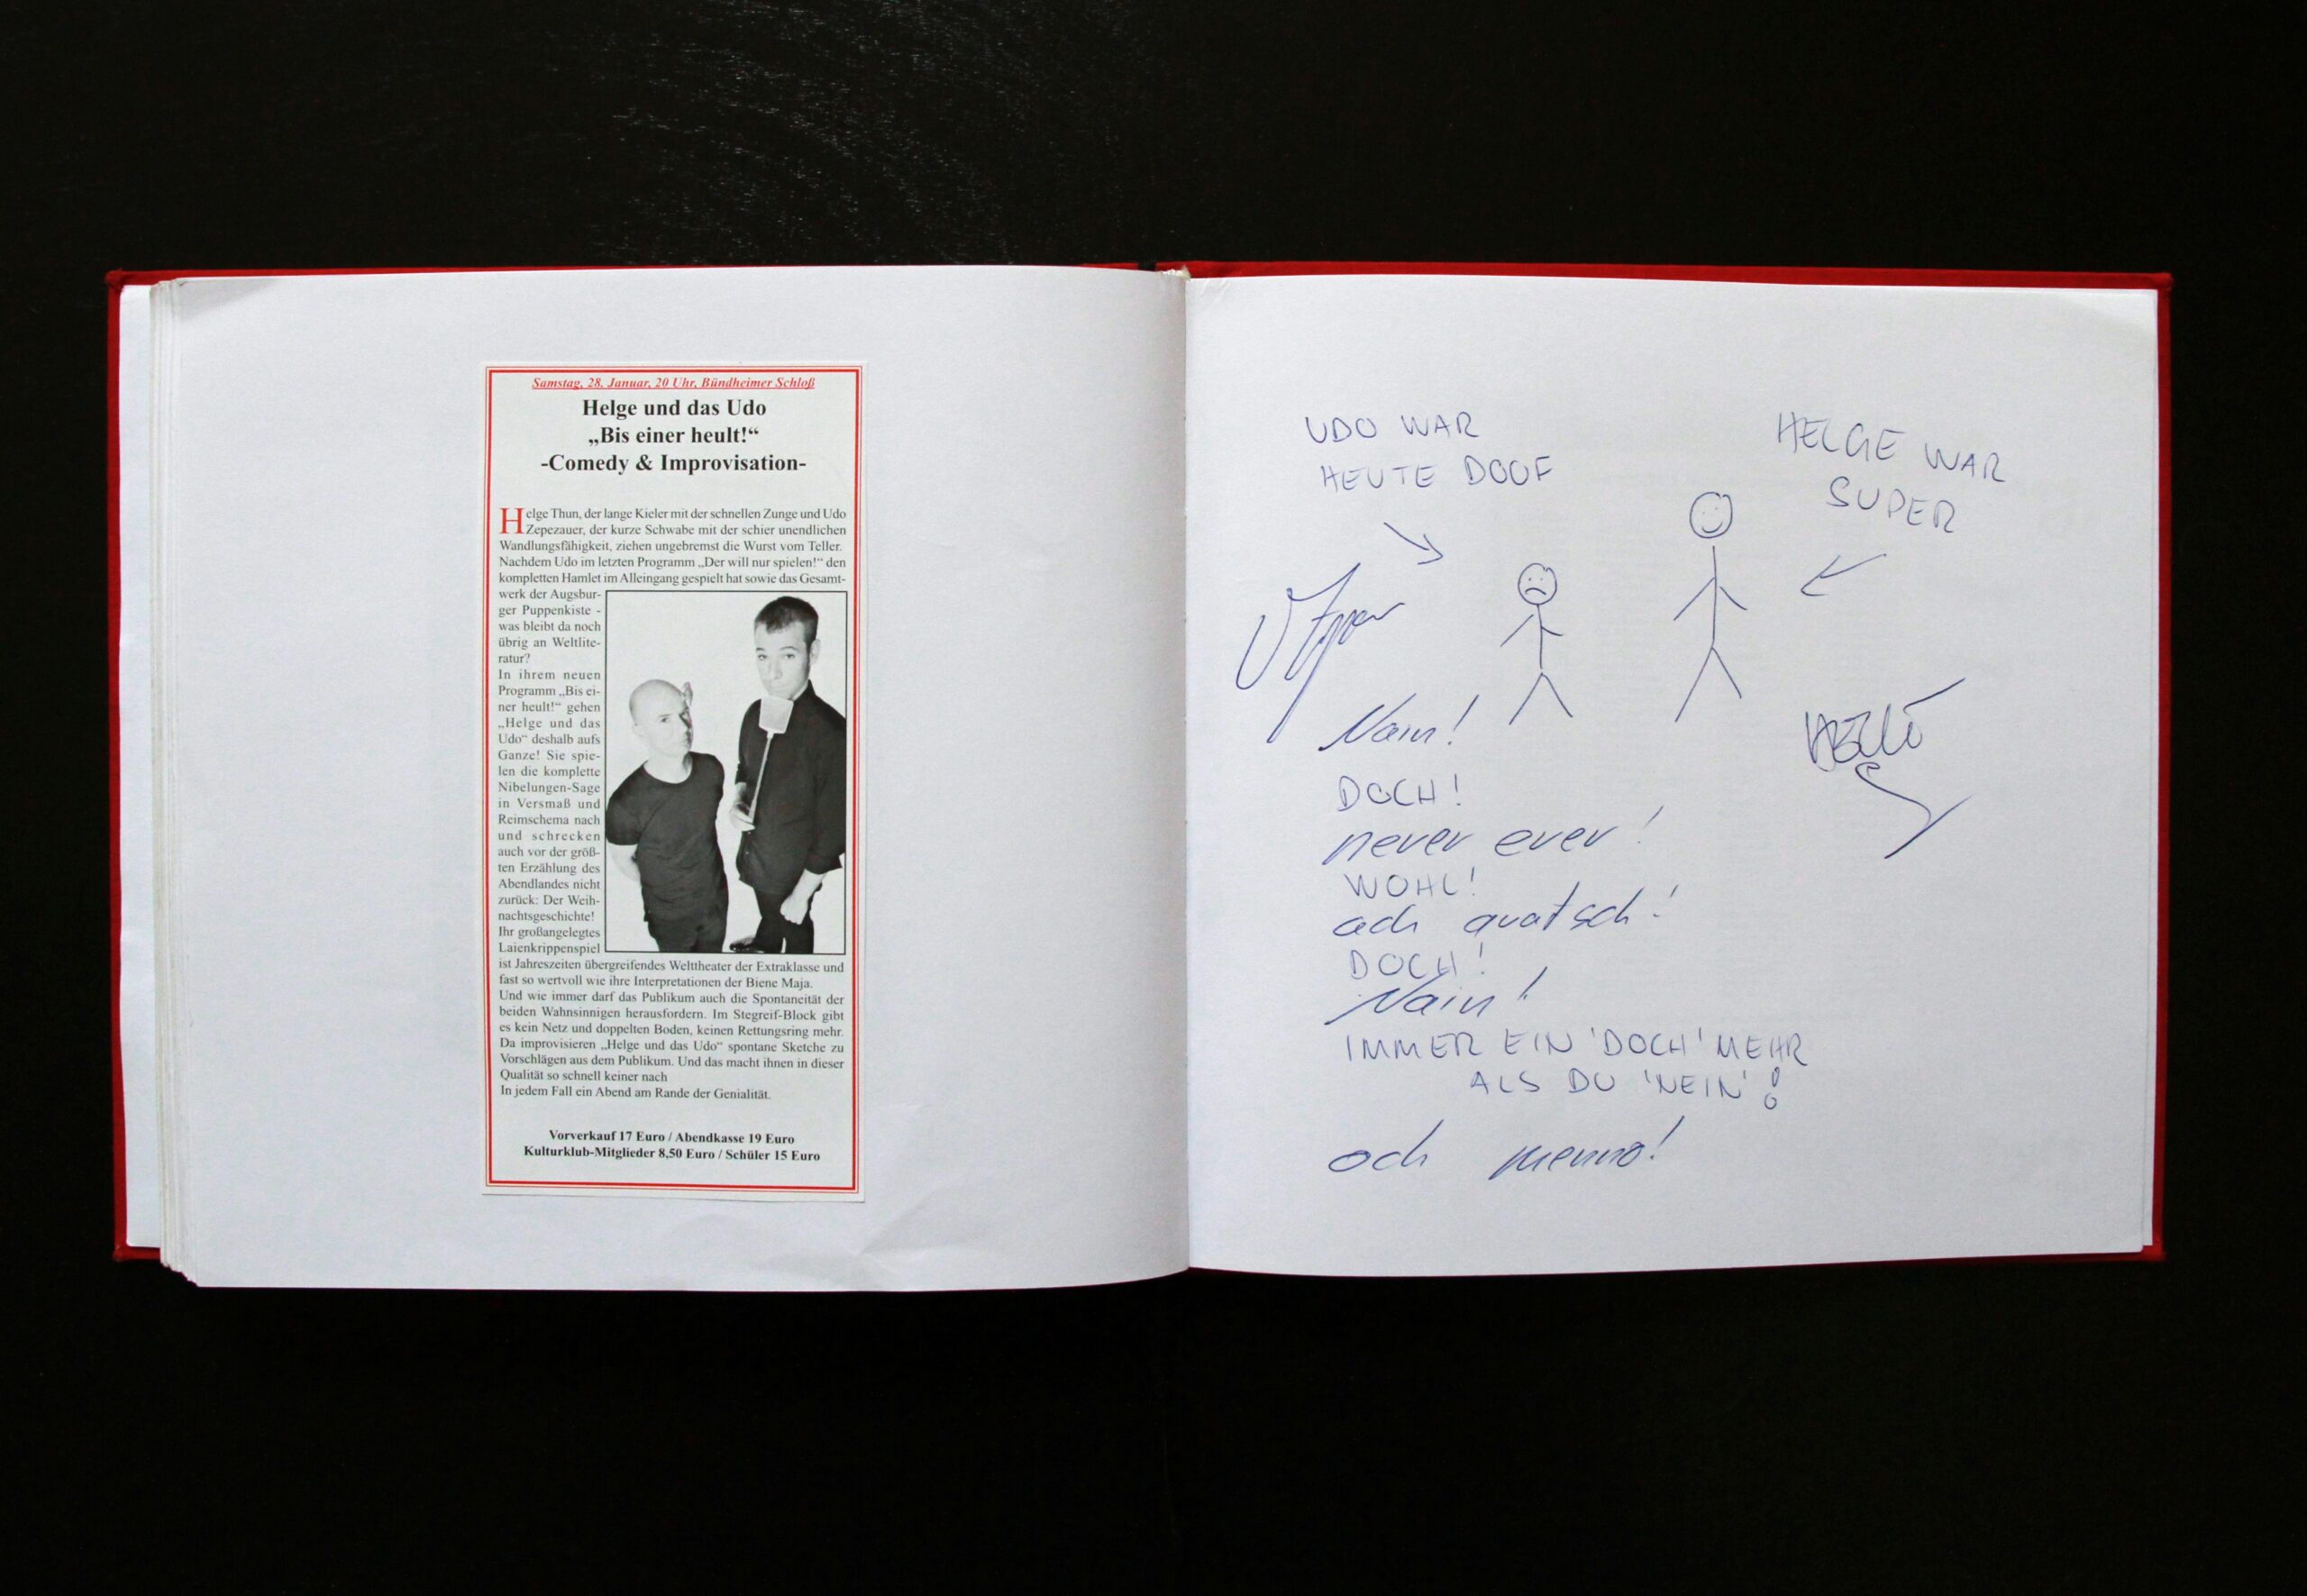 Samstag, 28. Januar, 20 Uhr, Bündheimer Schloß
Helge und das Udo
„Bis einer heult!“
-Comedy & Improvisation-
Helge Thun, der lange Kieler mit der schnellen Zunge und Udo
Zepezauer, der kurze Schwabe mit der schier unendlichen
Wandlungsfähigkeit, ziehen ungebremst die Wurst vom Teller.
Nachdem Udo im letzten Programm „Der will nur spielen!“ den
kompletten Hamlet im Alleingang gespielt hat sowie das Gesamt-
werk der Augsbur-
ger Puppenkiste -
was bleibt da noch
übrig an Weltlite-
ratur?
In ihrem neuen
Programm „Bis ei-
ner heult!“ gehen
„Helge und das
Udo“ deshalb aufs
Ganze! Sie spie-
len die komplette
Nibelungen-Sage
in Versmaß und
Reimschema nach
und schrecken
auch vor der größ-
ten Erzählung des
Abendlandes nicht
zurück: Der Weih-
nachtsgeschichte!
Ihr großangelegtes
Laienkrippenspiel
ist Jahreszeiten übergreifendes Welttheater der Extraklasse und
fast so wertvoll wie ihre Interpretationen der Biene Maja.
Und wie immer darf das Publikum auch die Spontaneität der
beiden Wahnsinnigen herausfordern. Im Stegreif-Block gibt
es kein Netz und doppelten Boden, keinen Rettungsring mehr.
Da improvisieren „Helge und das Udo“ spontane Sketche zu
Vorschlägen aus dem Publikum. Und das macht ihnen in dieser
Qualität so schnell keiner nach
In jedem Fall ein Abend am Rande der Genialität.
Vorverkauf 17 Euro / Abendkasse 19 Euro
Kulturklub-Mitglieder 8,50 Euro / Schüler 15 Euro
UDO WAR
HEUTE DOOF
HELGE WAR
SUPER
Nain!
DOCH!
never ever!
WOHL!
ach quatsch!
DOCH!
Nain!
IMMER EIN 'DOCH' MEHR
ALS DU 'NEIN'!
och menno!